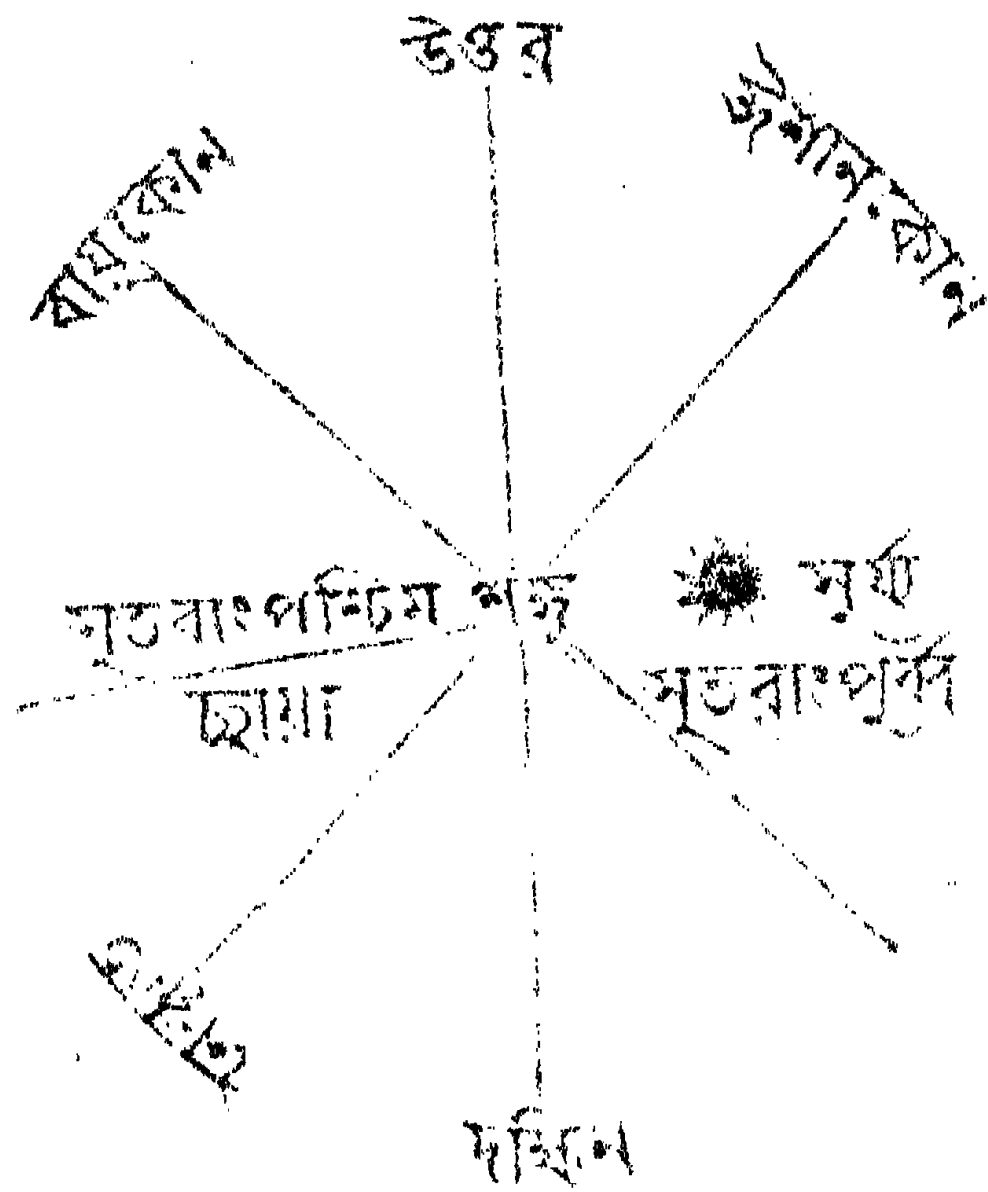 উত্তর
ঈশান কোন
বায়ুকোন
সুতরাং পশ্চিম শঙ্কু
সূর্য্য
ছায়া
সুতরাং পূর্ব্ব
দক্ষিন